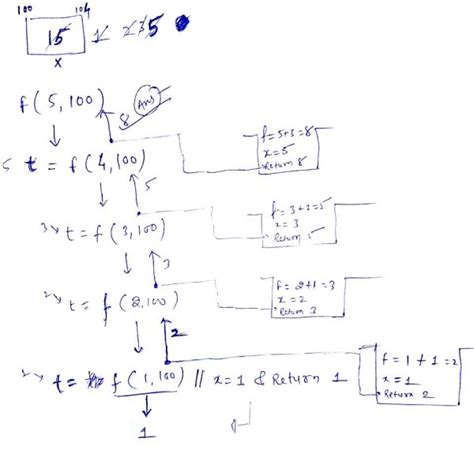 100 104
15 1 2 3 5
x
f(5,100) 8 Ans
f=5+3=8
x=5
Return 8
5 t = f(4,100)
5
f=3+2=5
x=3
Return 5
3 t = f(3,100)
3
f=2+1=3
x=2
Return 3
2 t = f(2,100)
2
f=1+1=2
x=1
Return 2
2 t = f(1,100) || x=1 & Return 1
1